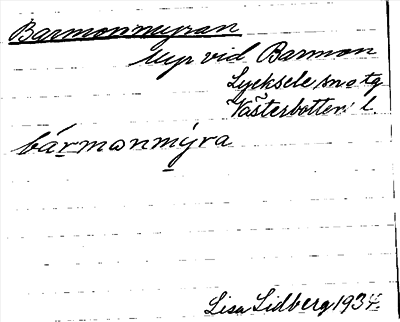 Barmonmyran
Myr vid Barmon
Lycksele sn o tg
Västerbottens l.
bármonmýra
Lisa Lidberg 1934.